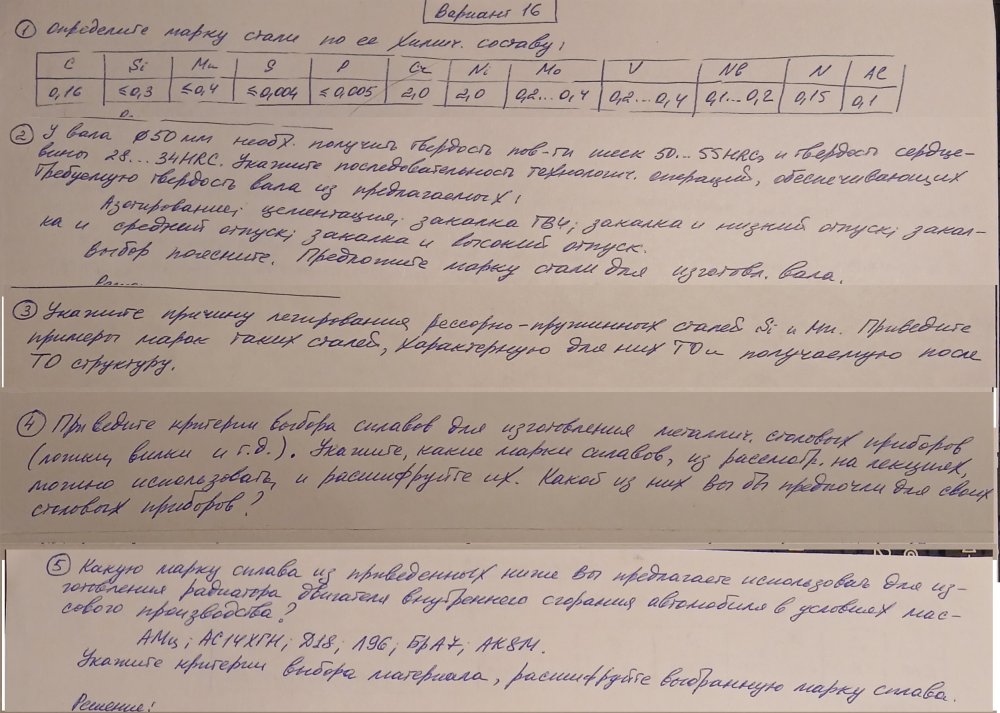 Вариант 16
① Определите марку стали по ее химич. составу:
C Si Mn S P Cr Ni Mo V Nb N Al
0,16 ≤0,3 ≤0,4 ≤0,004 ≤0,005 2,0 2,0 0,2...0,4 0,2...0,4 0,1...0,2 0,15 0,1
② У вала ø50мм необх. получить твердость пов-ти шеек 50...55HRCэ и твердость сердце-
вины 28...34HRC. Укажите последовательность технологич. операций, обеспечивающих
требуемую твердость вала из предлагаемых:
Азотирование; цементация; закалка ТВЧ; закалка и низкий отпуск; закал-
ка и средний отпуск; закалка и высокий отпуск.
Выбор поясните. Предложите марку стали для изготовл. вала.
③ Укажите причину легирования рессорно-пружинных сталей Si и Mn. Приведите
примеры марок таких сталей, характерную для них ТО и получаемую после
ТО структуру.
④ Приведите критерии выбора сплавов для изготовления металлич. столовых приборов
(ложки, вилки и т.д.). Укажите, какие марки сплавов, из рассмотр. на лекциях,
можно использовать, и расшифруйте их. Какой из них вы бы предпочли для своих
столовых приборов?
⑤ Какую марку сплава из приведенных ниже вы предлагаете использовать для из-
готовления радиатора двигателя внутреннего сгорания автомобиля в условиях мас-
сового производства?
АМц; АС14ХГН; Д18; Л96; БрА7; АК8М.
Укажите критерии выбора материала, расшифруйте выбранную марку сплава.
Решение: